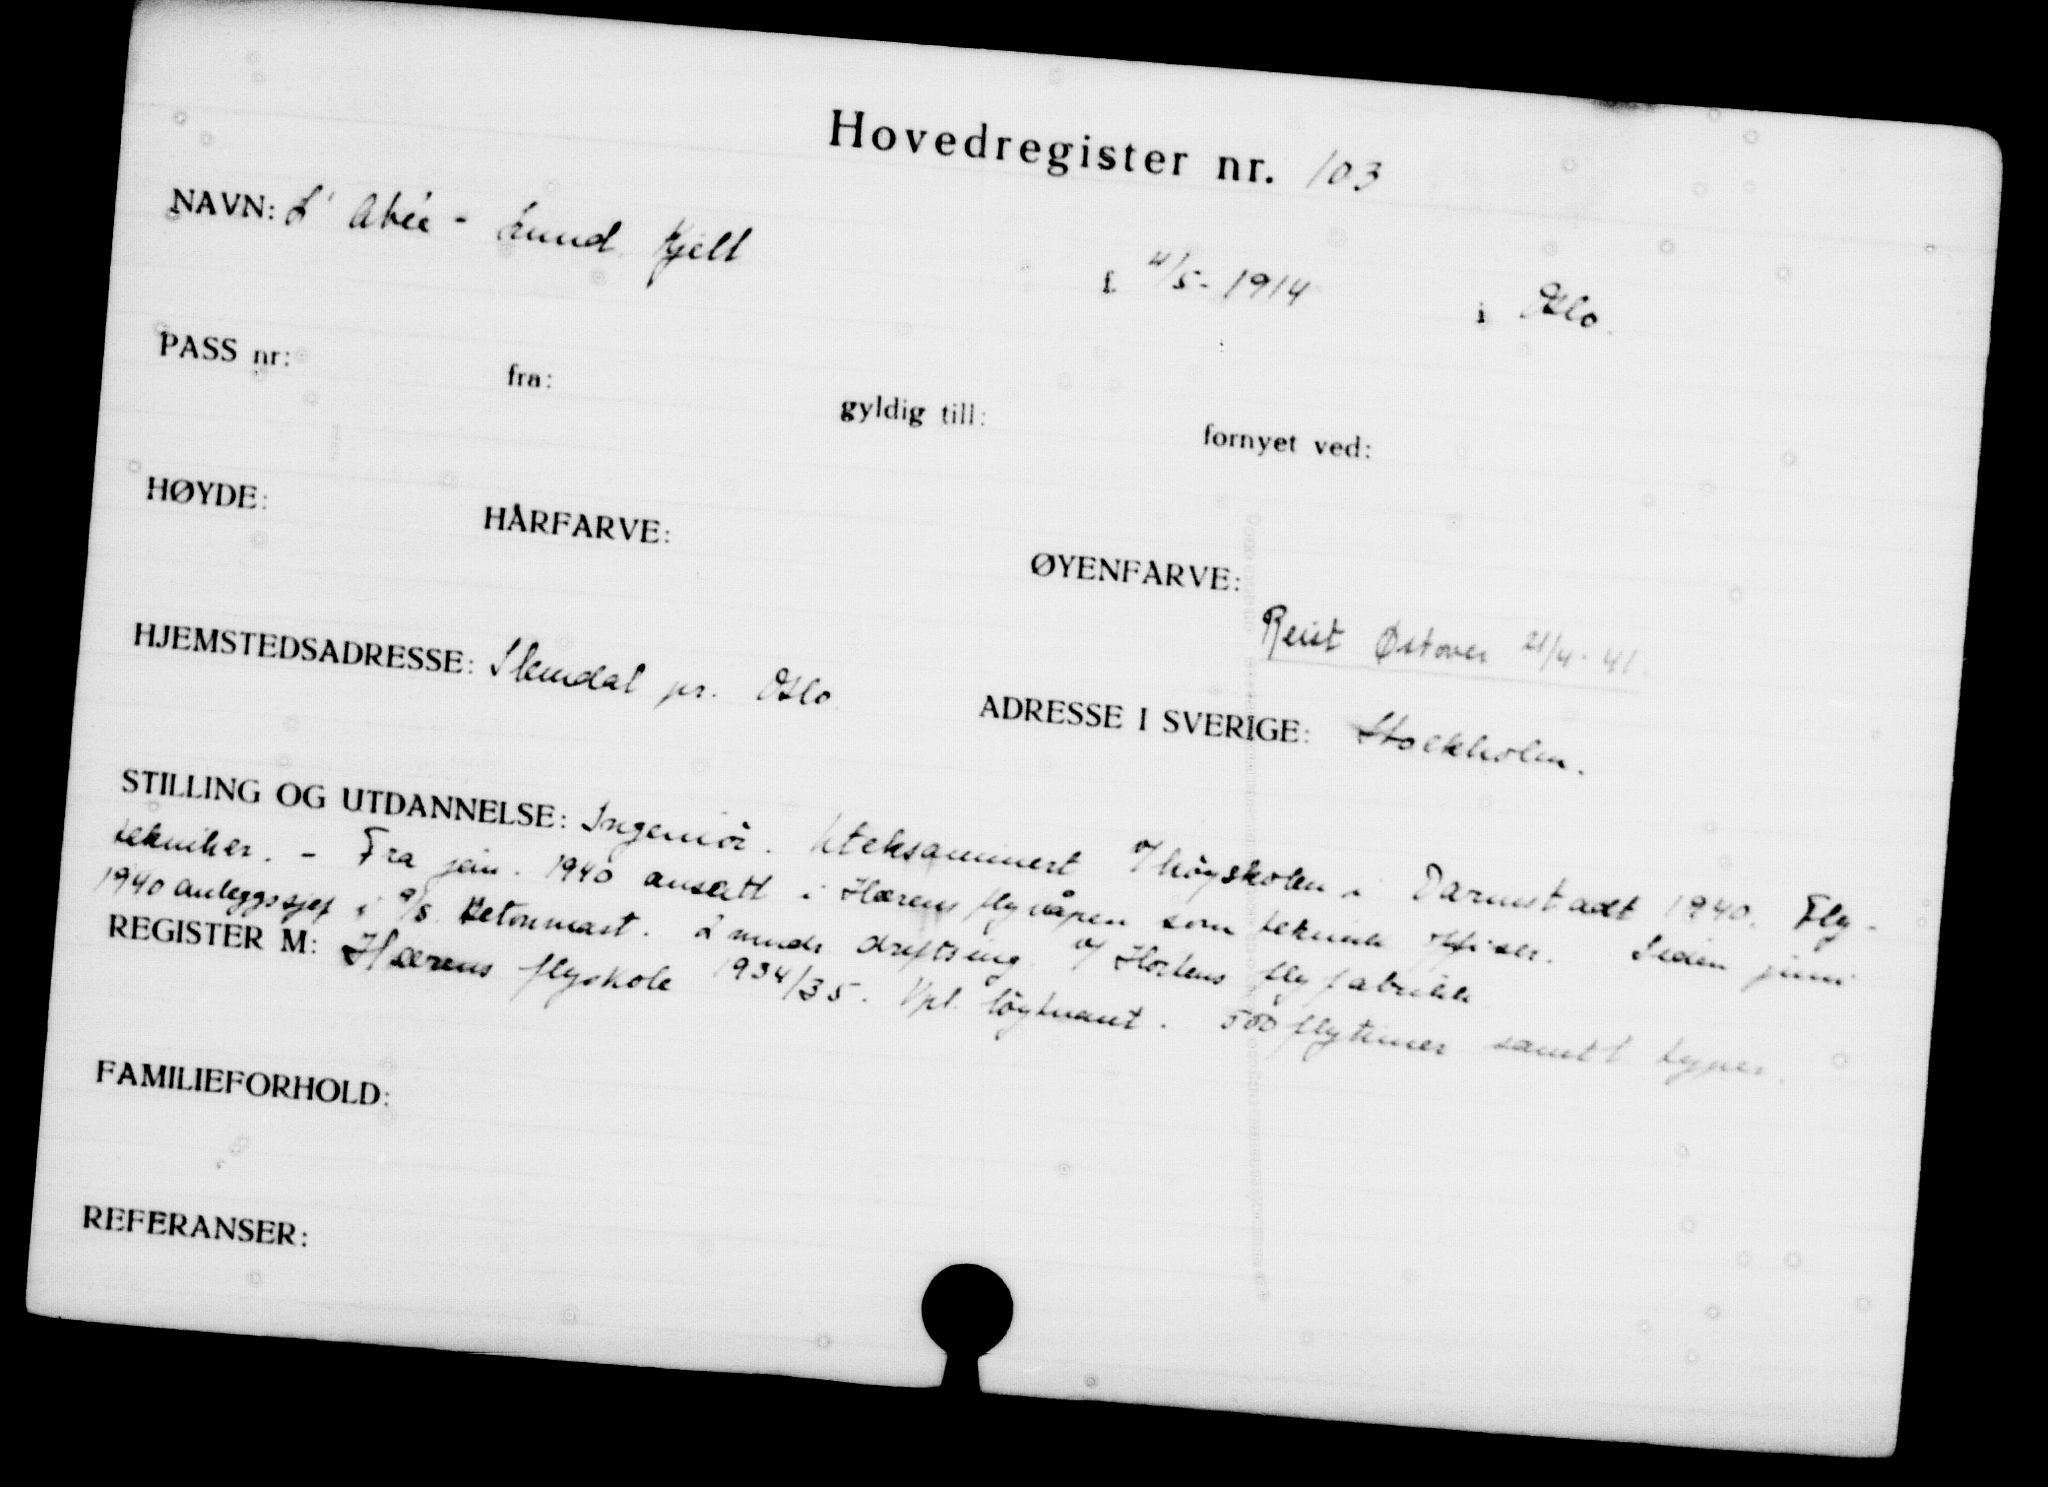 Hovedregister nr. 103
NAVN: L' Abée - Lund Kjell f. 4/5- 1914 i Oslo.
PASS nr: fra: gyldig till: fornyet ved:
HØYDE: HÅRFARVE: ØYENFARVE:
Reist Østover 21/4-41.
HJEMSTEDSADRESSE: Slemdal pr. Oslo ADRESSE I SVERIGE: Stockholm.
STILLING OG UTDANNELSE: Ingeniör. Uteksaminert v/ höyskolen i Darmstadt 1940. Fly-
tekniker. - Fra jan. 1940 ansatt i Hærens flyvåpen som teknisk offiser. Siden juni
1940 anleggssjef i A/S Betonmast. 2 mndr driftsing. v/ Hortens flyfabrikk
REGISTER M: Hærens flyskole 1934/35. Vpl. löytnant. 500 flytimer samtl. typer.
FAMILIEFORHOLD:
REFERANSER: